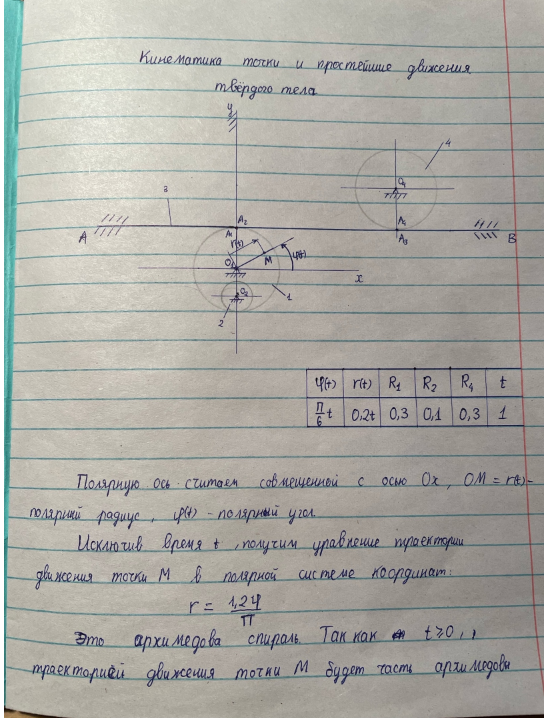 Кинематика точки и простейшие движения
твёрдого тела
y
3
4
O₄
A
A₂
A₁
A₄
A₃
B
r(t)
φ(t)
O
M
x
O₂
1
2
φ(t) r(t) R₁ R₂ R₄ t
π/6 t 0,2t 0,3 0,1 0,3 1
Полярную ось считаем совмещенной с осью Ox, OM = r(t)-
полярный радиус, φ(t) - полярный угол
Исключив время t, получим уравнение траектории
движения точки M в полярной системе координат:
r = 1,2φ/π
Это архимедова спираль. Так как t ≥ 0,
траекторией движения точки M будет часть архимедовы